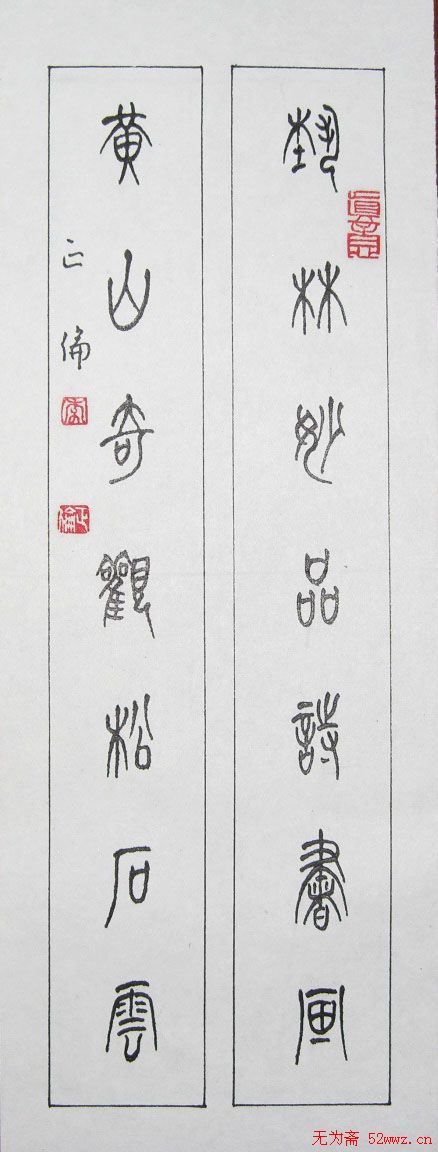 藝林妙品詩書画
黄山奇觀松石雲
正倫
李
正倫
无为斋 52wwz.cn